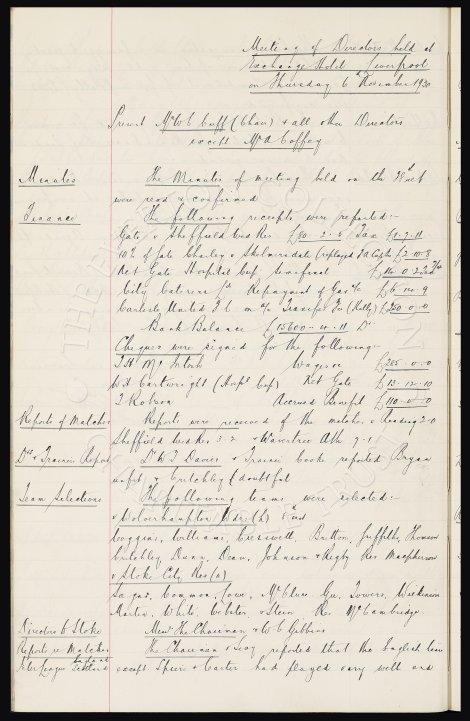 Meeting of Directors held at
Exchange Hotel Liverpool
on Thursday 6th November 1930
Present Mr W C Cuff (Chair) & all other Directors
except Mr A Coffey
Minutes The Minutes of meeting held on the 28th ult
were read & confirmed
Finance The following receipts were reported:-
Gate v Sheffield Wed Res £50-2-5 Tax £1-7-11
10% of Gate Chorley v Skelmersdale (replayed F A Cup tie) £2-10-8
Net Gate Hospital Cup Semifinal
City Caterers Repayment of Gas a/c £6-14-9
Carlisle United F C on a/c Transfer Fee (Kelly) £250-0-0
Bank Balance £15600-10-11 Dr
Cheques were signed for the following:-
T H McIntosh Wages &c £285-0-0
W J Cartwright (Hospl Cup) Net Gate £13-12-10
T Robson Accrued Benefit £110-0-0
Reports of Matches Reports were received of the matches v Reading 2-0
Sheffield Wed Res 3-2 v Wavertree Ath 7-1
Drs & Trainers Report Dr W T Davies & Trainer Cooke reported Bryan
unfit & Critchley doubtful
Team Selections The following teams were selected:-
v Wolverhampton Wdrs (h) 8th inst
Coggins, Williams, Cresswell, Britton, Griffiths, Thomson
Critchley Dunn, Dean, Johnson & Rigby Res Macpherson
v Stoke City Res (a)
Sagar, Common, Lowe, McClure Gee, Towers, Wilkinson
Martin, White, Webster & Stein Res McCambridge
Directors to Stoke Messrs The Chairman & W C Gibbins
Reports re Matches The Chairman & Secy reported that the English team
Inter League Ireland & Scotland except Spence & Carter had played very well and